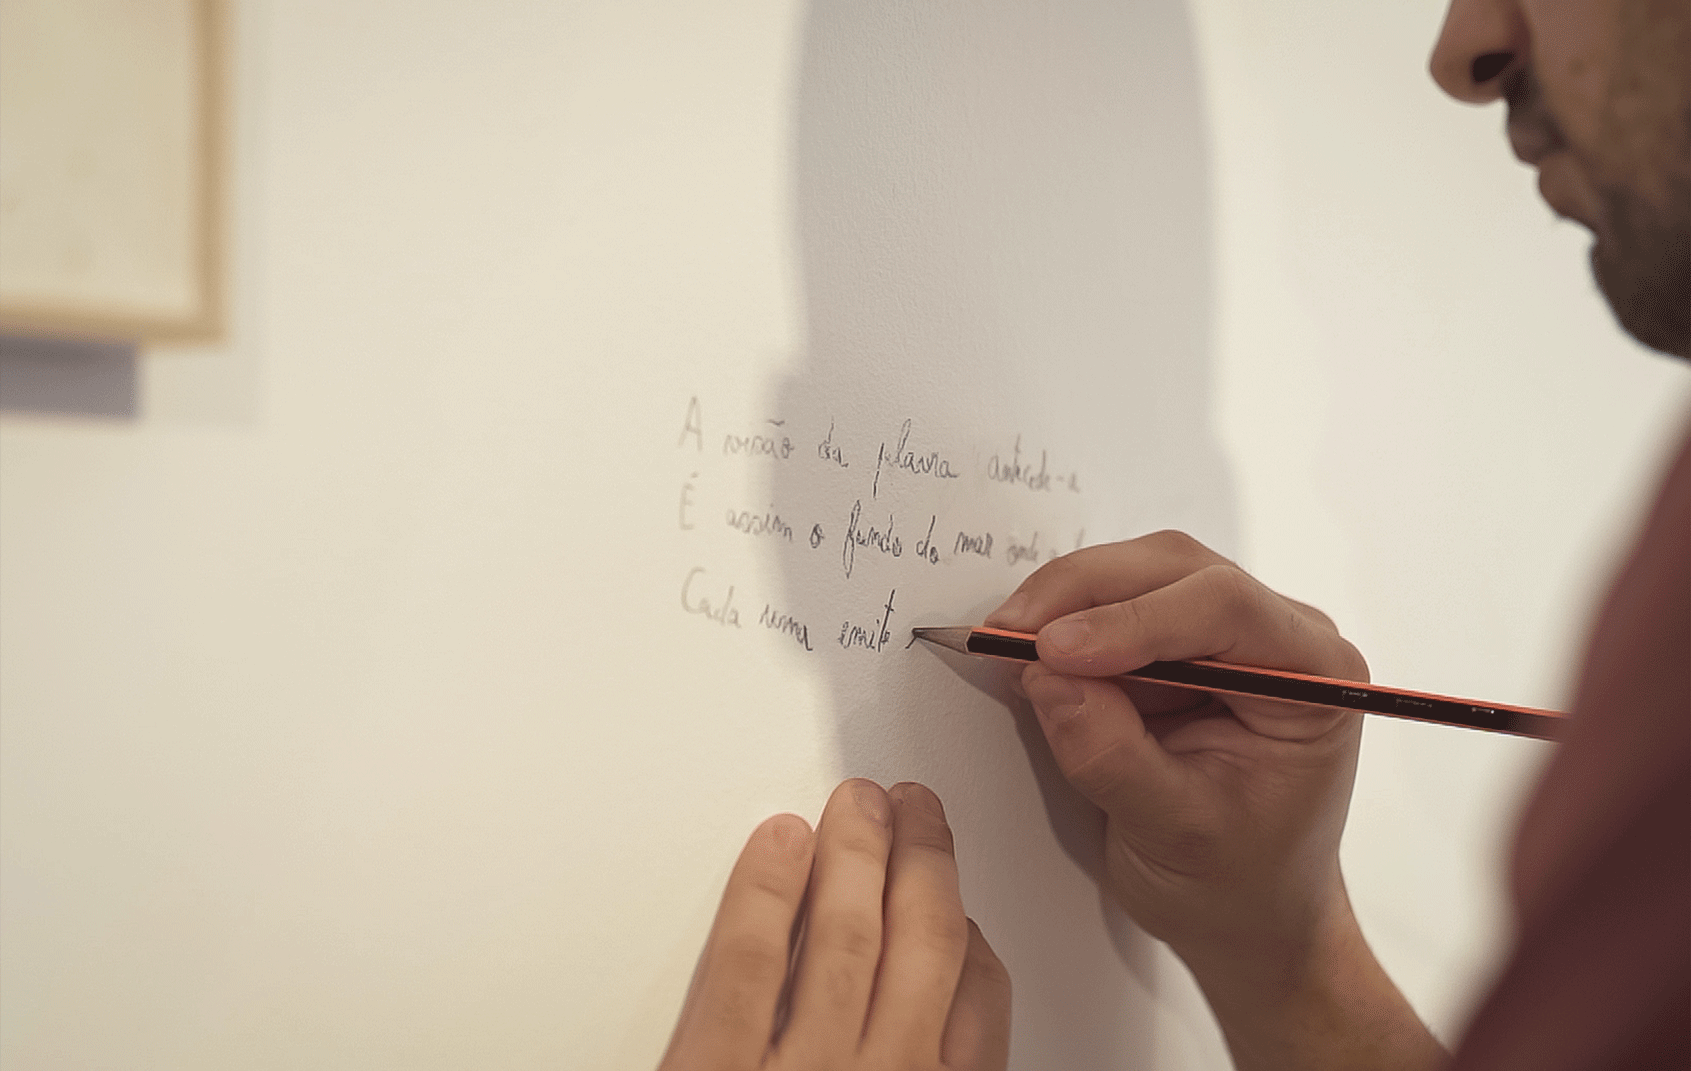 A visão da palavra antecede-a
É assim o fundo do mar onde
Cada uma emite